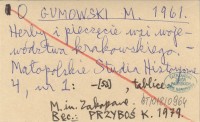 O GUMOWSKI M. 1961.
Herby i pieczęcie wsi woje-
wództwa krakowskiego. -
Małopolskie Studia Historyczne
4, nr 1: -(50), tablice
M. in. Zakopane
Rec.: PRZYBOŚ K. 1979.